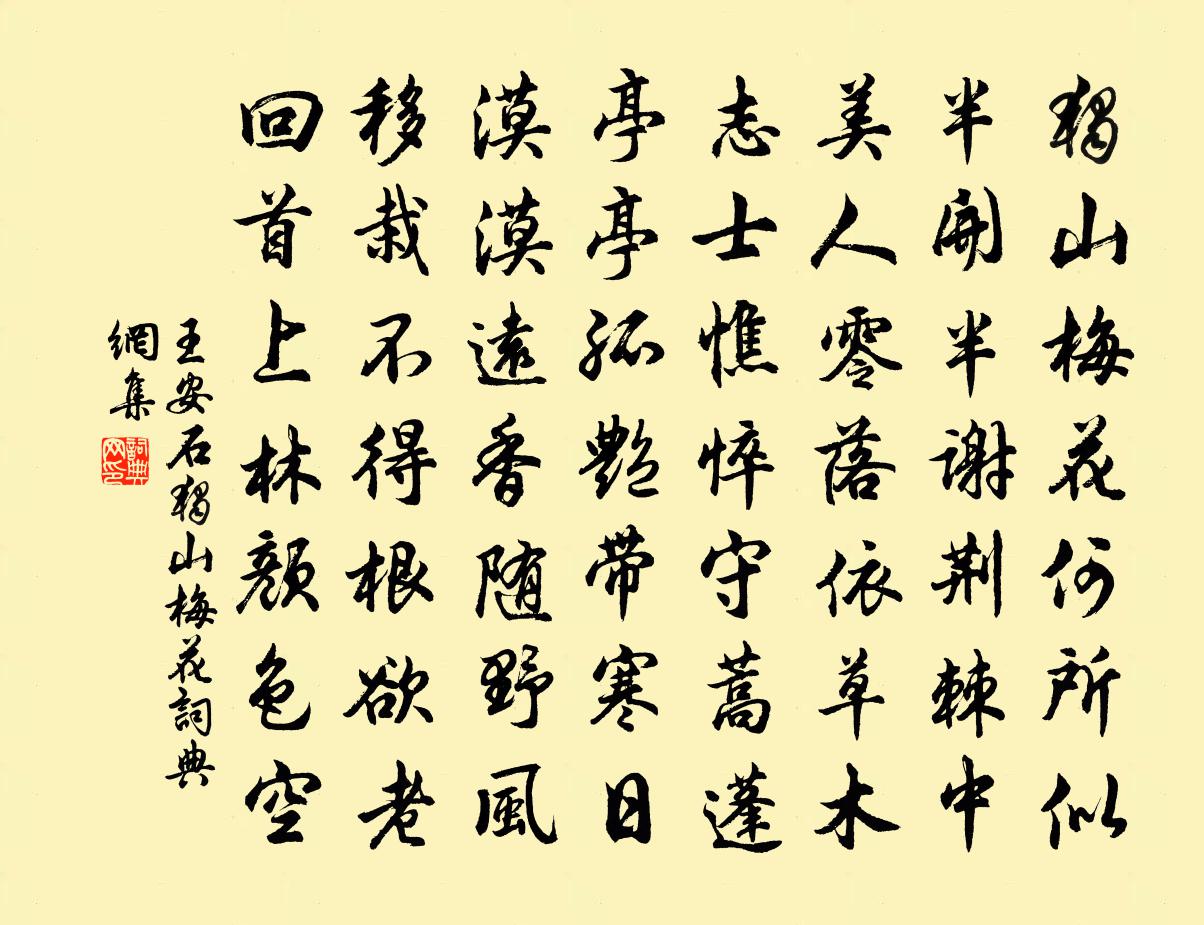 獨山梅花何所似
半開半謝荆棘中
美人零落依草木
志士憔悴守蒿蓬
亭亭孤艷帶寒日
漠漠遠香隨野風
移栽不得根欲老
回首上林顏色空
王安石獨山梅花詞典
網集
詞典
网印